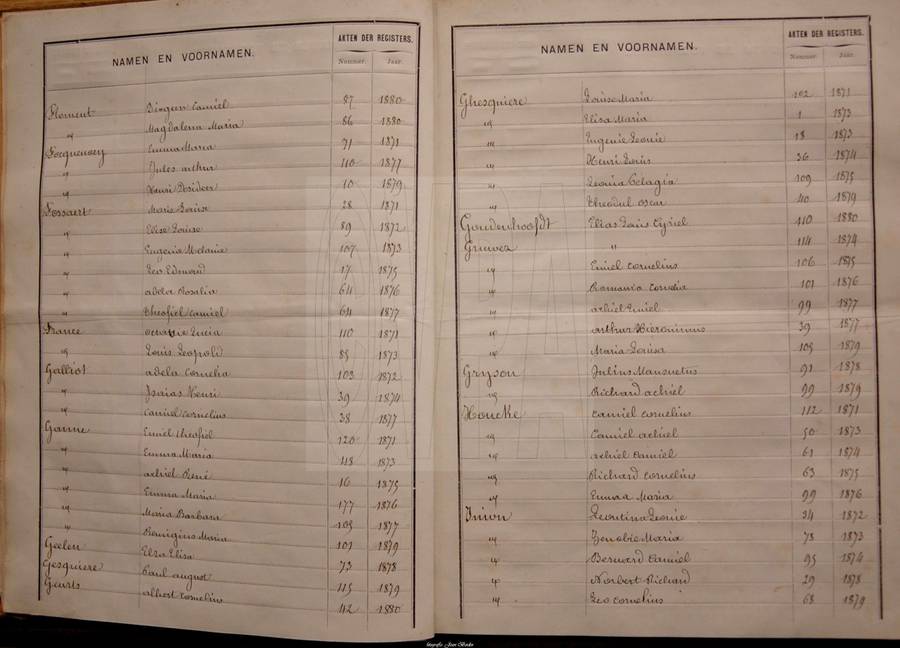 NAMEN EN VOORNAMEN. AKTEN DER REGISTERS.
Nummer. Jaar.
Floment Camiel 87 1880
" Magdalena Maria 86 1880
Focquenoey Emma Maria 71 1871
" Jules arthur 110 1877
" Henri Desideer 10 1879
Fossaert Marie Louise 28 1871
" Elise Louise 89 1872
" Eugenia Melanie 107 1873
" Leo Edmond 17 1875
" adela Rosalia 64 1876
" theofiel camiel 64 1877
France octavie Lucia 110 1871
" Louis Leopold 85 1873
Galliot adela Cornelia 103 1872
" Isaias Henri 39 1874
" Camiel cornelius 38 1877
Ganne Emiel theofiel 120 1871
" Emma Maria 118 1873
" achiel René 16 1875
" Emma Maria 177 1876
" Maria Barbara 105 1877
" Remigius Maria 101 1879
Geelen Elza Elisa 73 1878
Gesquiere Paul august 115 1879
Geurts albert cornelius 42 1880
NAMEN EN VOORNAMEN. AKTEN DER REGISTERS.
Nummer. Jaar.
Ghesquiere Louise Maria 102 1871
" Elisa Maria 1 1873
" Eugenie Leonie 18 1873
" Henri Louis 36 1874
" Leonia Pelagia 109 1875
" theodul oscar 40 1879
Goudenhoofdt Elias Louis Cyriel 110 1880
Gruwez " 114 1874
" Emiel cornelius 106 1875
" Romania cornelia 101 1876
" achiel Emiel 99 1877
" arthur Hieronimus 39 1877
" Maria Louisa 105 1879
Gryson Julius Mansuetus 91 1878
" Richard achiel 99 1879
Houcke camiel cornelius 112 1871
" Camiel achiel 50 1873
" achiel camiel 61 1874
" Richard cornelius 63 1875
" Emma Maria 99 1876
Inion Leontina Leonie 34 1872
" Zenobie Maria 78 1873
" Bernard Camiel 95 1874
" Norbert Richard 29 1878
" Leo cornelius 68 1879